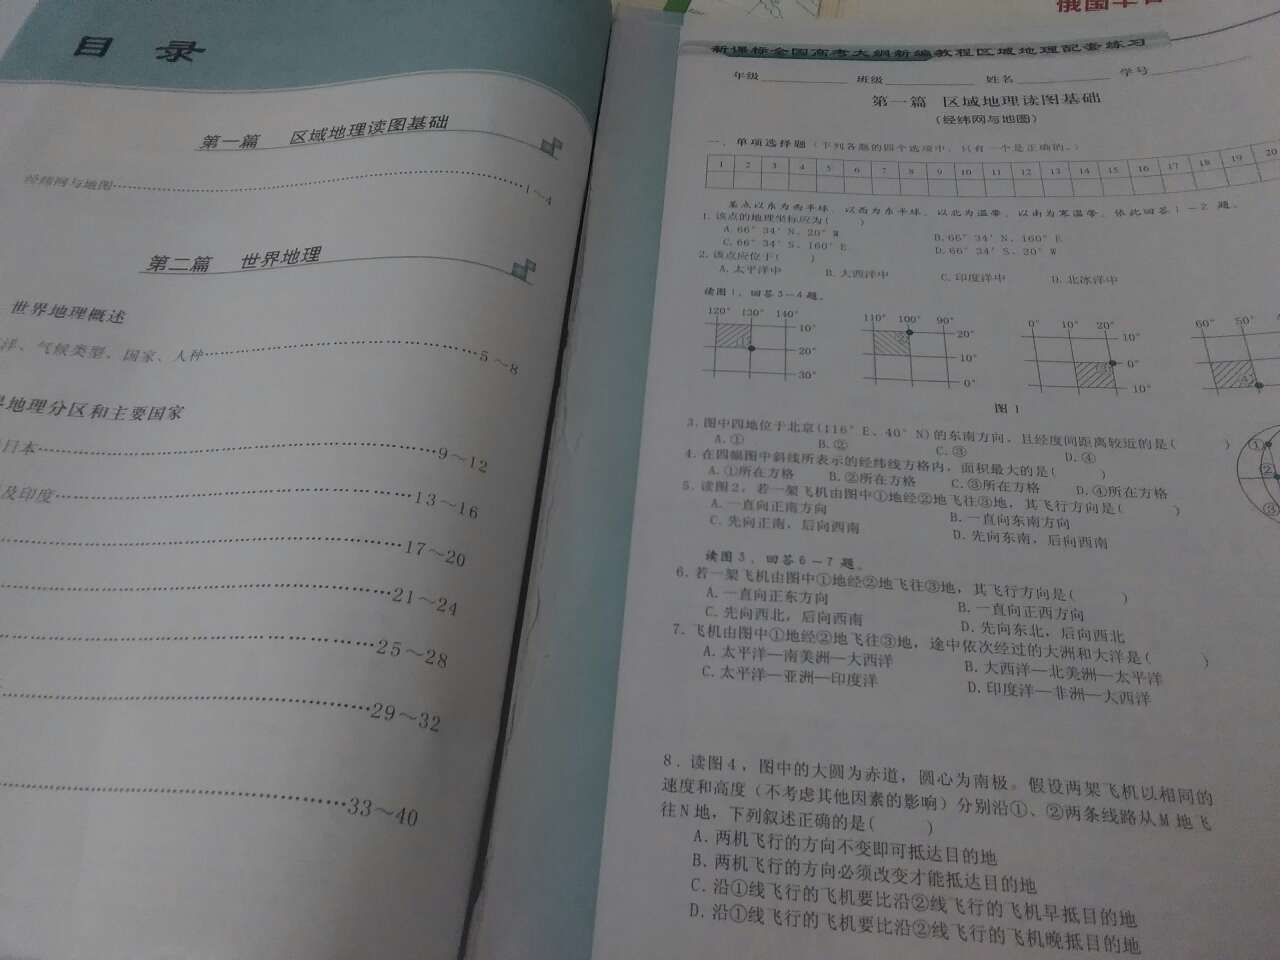 目 录
第一篇 区域地理读图基础
经纬网与地图 1～4
第二篇 世界地理
世界地理概述
洋、气候类型、国家、人种 5～8
地理分区和主要国家
日本 9～12
及印度 13～16
17～20
21～24
25～28
29～32
33～40
新课标全国高考大纲新编教程区域地理配套练习
年级 班级 姓名 学号
第一篇 区域地理读图基础
（经纬网与地图）
一、单项选择题（下列各题的四个选项中，只有一个是正确的。）
1 2 3 4 5 6 7 8 9 10 11 12 13 14 15 16 17 18 19 20
某点以东为西半球，以西为东半球，以北为温带，以南为寒温带，依此回答1－2题。
1.该点的地理坐标应为( )
A.66°34′N、20°W B.66°34′N、160°E
C.66°34′S、160°E D.66°34′S、20°W
2.该点应位于( )
A.太平洋中 B.大西洋中 C.印度洋中 D.北冰洋中
读图1，回答3－4题。
120° 130° 140° 110° 100° 90° 0° 10° 20° 60° 50°
10° 20° 10°
① ② ③ ④
20° 10° 0°
30° 0° 10°
图1
3.图中四地位于北京(116°E、40°N)的东南方向，且经度间距离较近的是( )
A.① B.② C.③ D.④
4.在四幅图中斜线所表示的经纬线方格内，面积最大的是( )
A.①所在方格 B.②所在方格 C.③所在方格 D.④所在方格
5.读图2，若一架飞机由图中①地经②地飞往③地，其飞行方向是( )
A.一直向正南方向 B.一直向东南方向
C.先向正南，后向西南 D.先向东南，后向西南
① ② ③
读图3，回答6－7题。
6.若一架飞机由图中①地经②地飞往③地，其飞行方向是( )
A.一直向正东方向 B.一直向正西方向
C.先向西北，后向西南 D.先向东北，后向西北
7.飞机由图中①地经②地飞往③地，途中依次经过的大洲和大洋是( )
A.太平洋—南美洲—大西洋 B.大西洋—北美洲—太平洋
C.太平洋—亚洲—印度洋 D.印度洋—非洲—大西洋
8.读图4，图中的大圆为赤道，圆心为南极。假设两架飞机以相同的
速度和高度（不考虑其他因素的影响）分别沿①、②两条线路从M地飞
往N地，下列叙述正确的是( )
A.两机飞行的方向不变即可抵达目的地
B.两机飞行的方向必须改变才能抵达目的地
C.沿①线飞行的飞机要比沿②线飞行的飞机早抵目的地
D.沿①线飞行的飞机要比沿②线飞行的飞机晚抵目的地